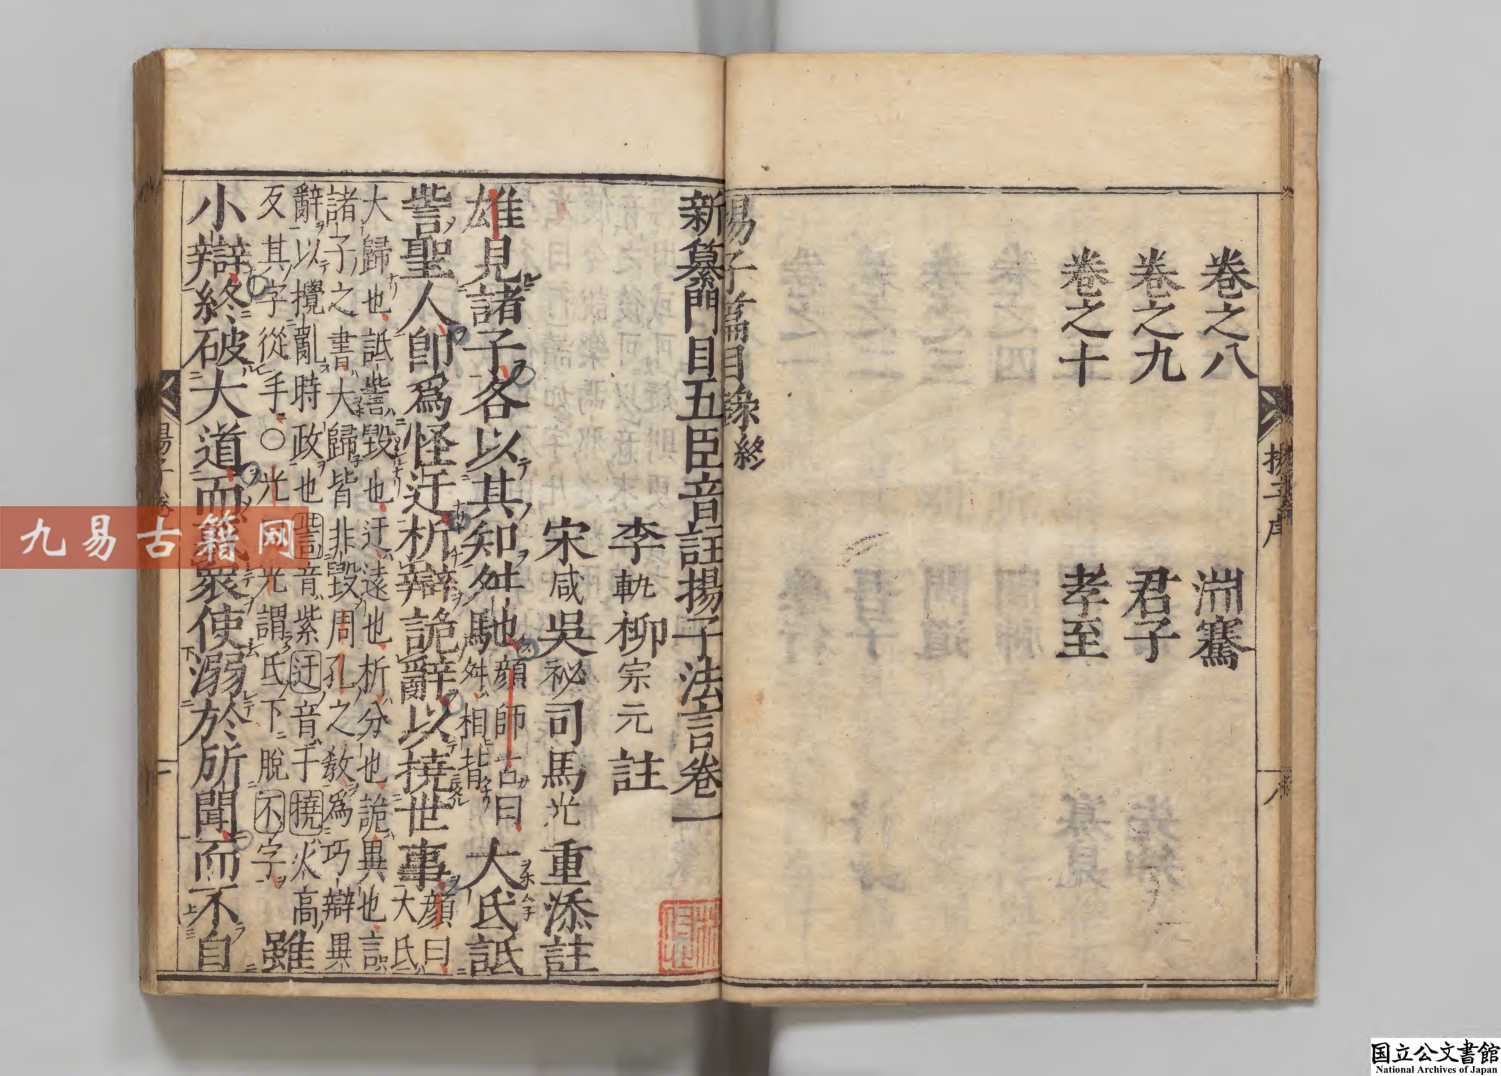 卷之八 淵騫
卷之九 君子
卷之十 孝至
揚子篇目錄終
新纂門目五臣音註揚子法言卷一
李軌柳宗元註
宋咸吳祕司馬光重添註
雄見諸子各以其知舛馳顔師古曰舛相背大氐詆
訾聖人卽爲怪迂析辯詭辭以撓世事顔曰大氐
大歸也詆訾毀也迂遠也析分也詭異也言
諸子之書大歸皆非毀周孔之敎爲巧辯異
辭以攪亂時政也訾音紫迂音于撓火高
反其字從手○光曰光謂氏下脫不字雖
小辯終破大道而惑衆使溺於所聞而不自
九易古籍网
国立公文書館
National Archives of Japan